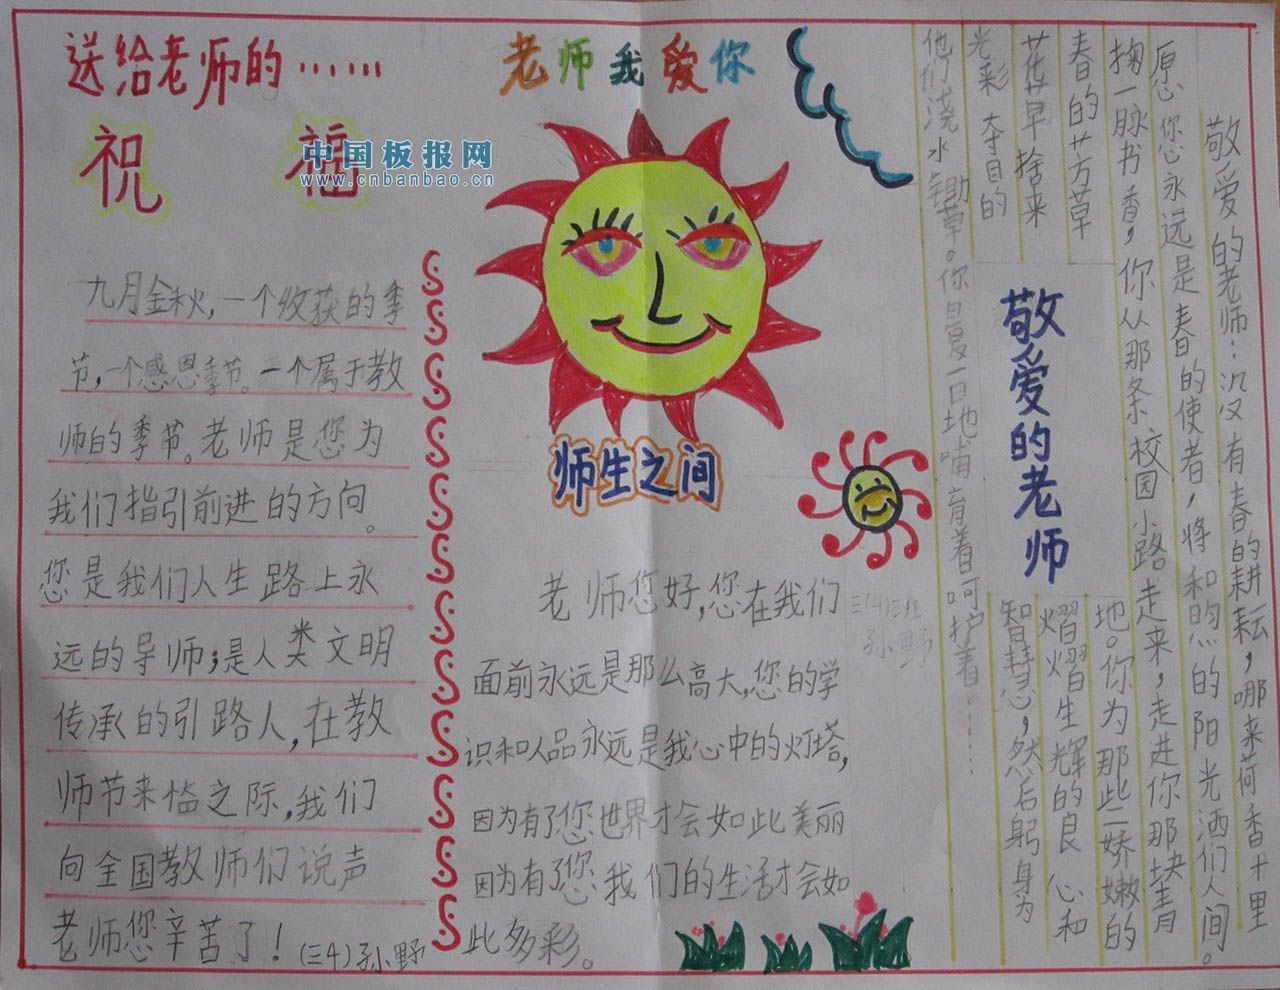 送给老师的……
祝福
中国板报网
www.cnbanbao.cn
九月金秋，一个收获的季
节，一个感恩季节。一个属于教
师的季节。老师是您为
我们指引前进的方向。
您是我们人生路上永
远的导师；是人类文明
传承的引路人，在教
师节来临之际，我们
向全国教师们说声
老师您辛苦了！（三4）孙野
老师我爱你
师生之间
老师您好，您在我们
面前永远是那么高大，您的学
识和人品永远是我心中的灯塔，
因为有了您世界才会如此美丽
因为有了您我们的生活才会如
此多彩。
三（4）三班
孙野
敬爱的老师
敬爱的老师：没有春的耕耘，哪来荷香十里
愿您您永远是春的使者，将和煦的阳光洒们人间。
掬一脉书香，你从那条校园小路走来，走进你那块青
春的芳草地。你为那些一娇嫩的
花草捨来熠熠生辉的良心和
光彩夺目的智慧，然后躬身为
他们浇水锄草。你日复一日地哺育着呵护着……